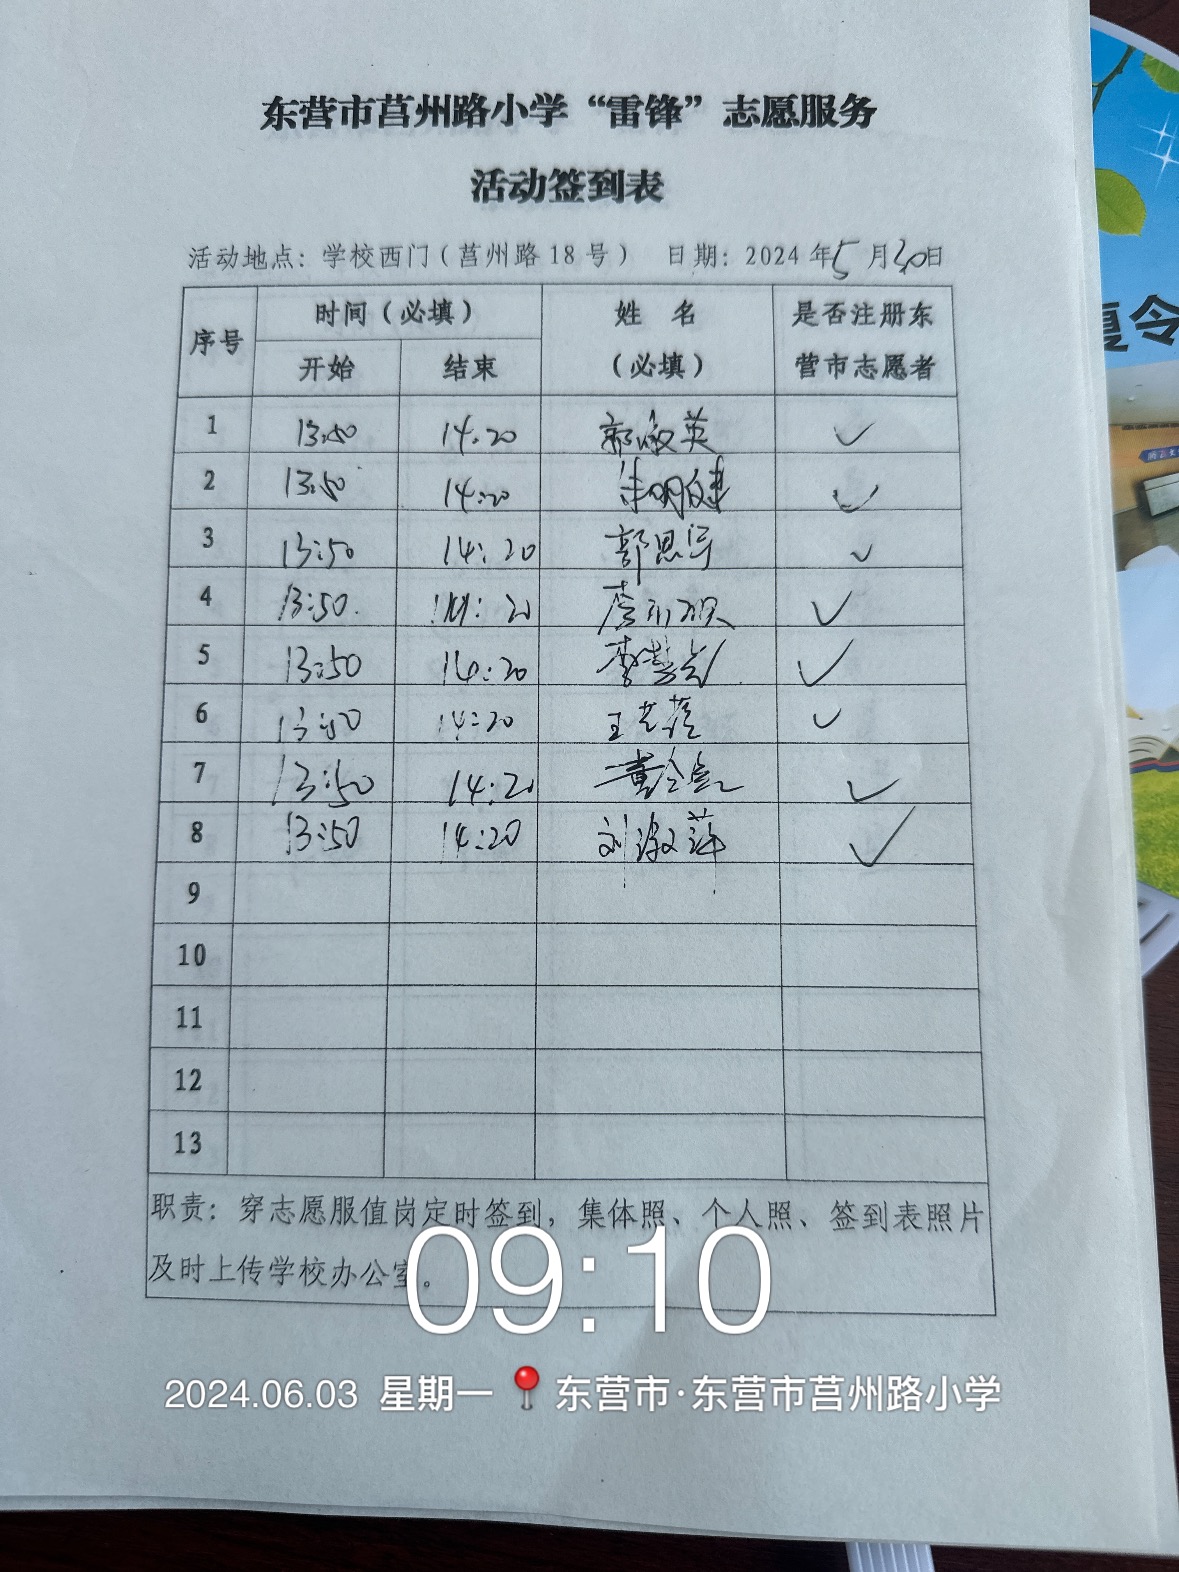 东营市莒州路小学“雷锋”志愿服务
活动签到表
活动地点：学校西门（莒州路18号） 日期：2024年5月30日
序号 时间（必填） 姓 名 是否注册东
开始 结束 （必填） 营市志愿者
1 13:50 14:20 郭淑英 ✓
2 13:50 14:20 朱明健 ✓
3 13:50 14:20 郭思宇 ✓
4 13:50. 14:20 ✓
5 13:50 14:20 ✓
6 13:50 14:20 王艺蓓 ✓
7 13:50 14:20 ✓
8 13:50 14:20 刘淑萍 ✓
9
10
11
12
13
职责：穿志愿服值岗定时签到，集体照、个人照、签到表照片
及时上传学校办公室。
09:10
2024.06.03 星期一 东营市·东营市莒州路小学
夏令